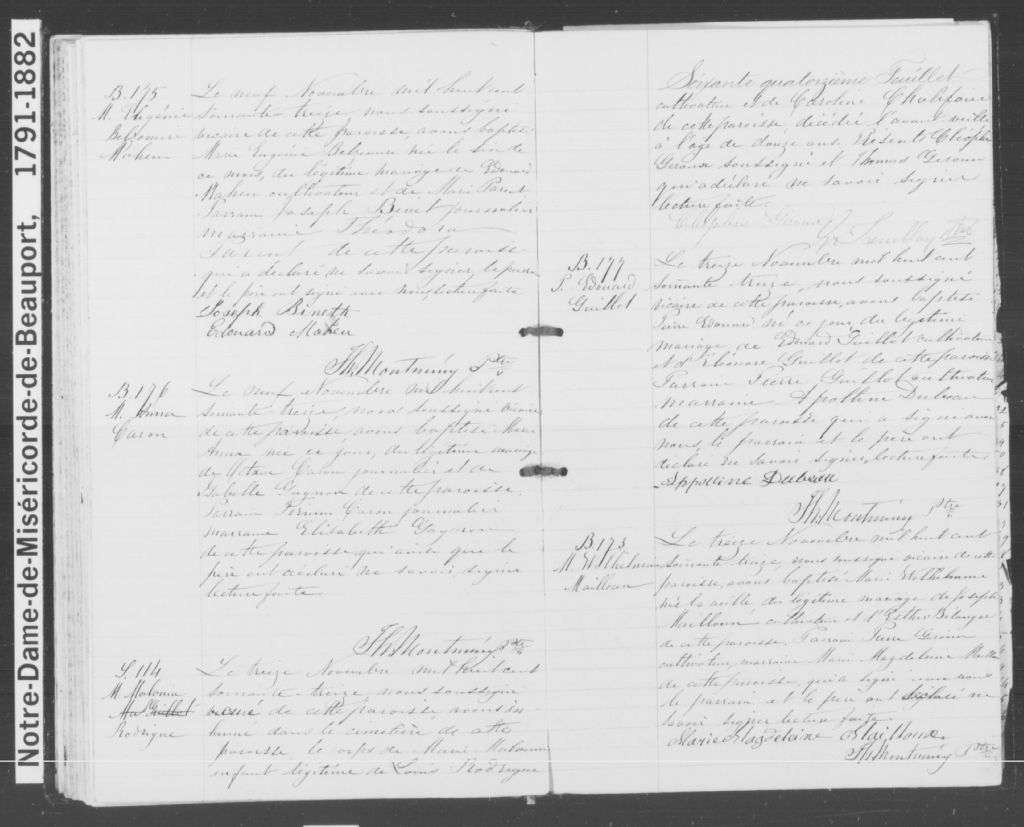 Notre-Dame-de-Miséricorde-de-Beauport, 1791-1882
B. 175
M. Eugénie
Belzemire
Maheu
Le neuf Novembre mil huit cent
soixante treize, nous soussigné
vicaire de cette paroisse, avons baptisé
Marie Eugénie Belzemire née le six de
ce mois, du légitime mariage de Edouard
Maheu cultivateur et de Marie Parent
Parrain Joseph Binet journalier
marraine Théodora
Parent de cette paroisse
qui a déclaré ne savoir signer, le parrain
et le père ont signé avec nous, lecture faite
Joseph Bineth
Edouard Maheu
Th. Montminy Ptre
B. 176
M. Anna
Caron
Le neuf Novembre mil huit cent
soixante treize, nous soussigné vicaire
de cette paroisse, avons baptisé Marie
Anna, née ce jour, du légitime mariage
de Octave Caron journalier et de
Isabelle Gagnon de cette paroisse.
Parrain Firmin Caron journalier
marraine Elisabeth Gagnon
de cette paroisse qui ainsi que le
père ont déclaré ne savoir signer
lecture faite
Th. Montminy Ptre
S. 114
M. Malvina
Rodrigue
Le treize Novembre mil huit cent
soixante-treize, nous soussigné
de cette paroisse avons in-
humé dans le cimetière de cette
paroisse le corps de Marie Malvina
enfant légitime de Louis Rodrigue
Soixante quatorzième Feuillet
cultivateur & de Caroline Chalifour
de cette paroisse, décédée l'avant veille
à l'âge de douze ans. Présents Cléophas
Giroux soussigné et Thomas Giroux
qui a déclaré ne savoir signer
lecture faite
Cléophas Giroux
Tremblay Ptre
B. 177
P. Edouard
Guillot
Le treize Novembre mil huit cent
soixante treize, nous soussigné
vicaire de cette paroisse, avons baptisé
Pierre Edouard né ce jour du légitime
mariage de Edouard Guillot cultivateur
et d'Eléonore Guillot de cette paroisse
Parrain Pierre Guillot cultivateur
marraine Apolline Dubeau
de cette paroisse qui a signé avec
nous, le parrain et le père ont
déclaré ne savoir signer, lecture faite
Appoline Dubeau
Th. Montminy Ptre
B 173
M. Wilhelmine
Mailloux
Le treize Novembre mil huit cent
soixante treize, nous soussigné vicaire de cette
paroisse, avons baptisé Marie Wilhelmine
née la veille du légitime mariage de Joseph
Mailloux cultivateur et d'Esther Bélanger
de cette paroisse. Parrain Pierre Giroux
cultivateur, marraine Marie Magdeleine Mailloux
de cette paroisse, qui a signé avec nous
le parrain et le père ont déclaré ne
savoir signer lecture faite
Marie Magdelaine Mailloux
Th. Montminy Ptre